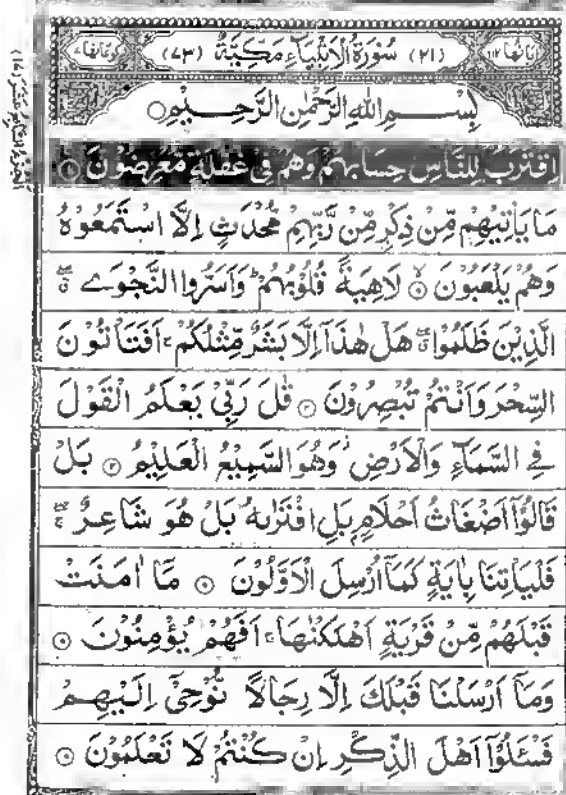 اٰیَاتُهَا ۱۱۲ (۲۱) سُوْرَةُ الْاَنْۢبِیَآءِ مَكِّیَّةٌ (۷۳) رُكُوْعَاتُهَا ۷
بِسْمِ اللهِ الرَّحْمٰنِ الرَّحِیْمِ
اِقْتَرَبَ لِلنَّاسِ حِسَابُهُمْ وَهُمْ فِیْ غَفْلَةٍ مُّعْرِضُوْنَ ۝۱
مَا یَاْتِیْهِمْ مِّنْ ذِكْرٍ مِّنْ رَّبِّهِمْ مُّحْدَثٍ اِلَّا اسْتَمَعُوْهُ
وَهُمْ یَلْعَبُوْنَ ۝ لَاهِیَةً قُلُوْبُهُمْ ؕ وَاَسَرُّوا النَّجْوَے
الَّذِیْنَ ظَلَمُوْا هَلْ هٰذَاۤ اِلَّا بَشَرٌ مِّثْلُكُمْ ۚ اَفَتَاْتُوْنَ
السِّحْرَ وَاَنْتُمْ تُبْصِرُوْنَ ۝ قٰلَ رَبِّیْ یَعْلَمُ الْقَوْلَ
فِے السَّمَآءِ وَالْاَرْضِ ؗ وَهُوَ السَّمِیْعُ الْعَلِیْمُ ۝ بَلْ
قَالُوْۤا اَضْغَاثُ اَحْلَامٍۭ بَلِ افْتَرٰىهُ بَلْ هُوَ شَاعِرٌ
فَلْیَاْتِنَا بِاٰیَةٍ كَمَاۤ اُرْسِلَ الْاَوَّلُوْنَ ۝ مَاۤ اٰمَنَتْ
قَبْلَهُمْ مِّنْ قَرْیَةٍ اَهْلَكْنٰهَا ۚ اَفَهُمْ یُؤْمِنُوْنَ ۝
وَمَاۤ اَرْسَلْنَا قَبْلَكَ اِلَّا رِجَالًا نُّوْحِیْۤ اِلَیْهِمْ
فَسْـَٔلُوْۤا اَهْلَ الذِّكْرِ اِنْ كُنْتُمْ لَا تَعْلَمُوْنَ ۝